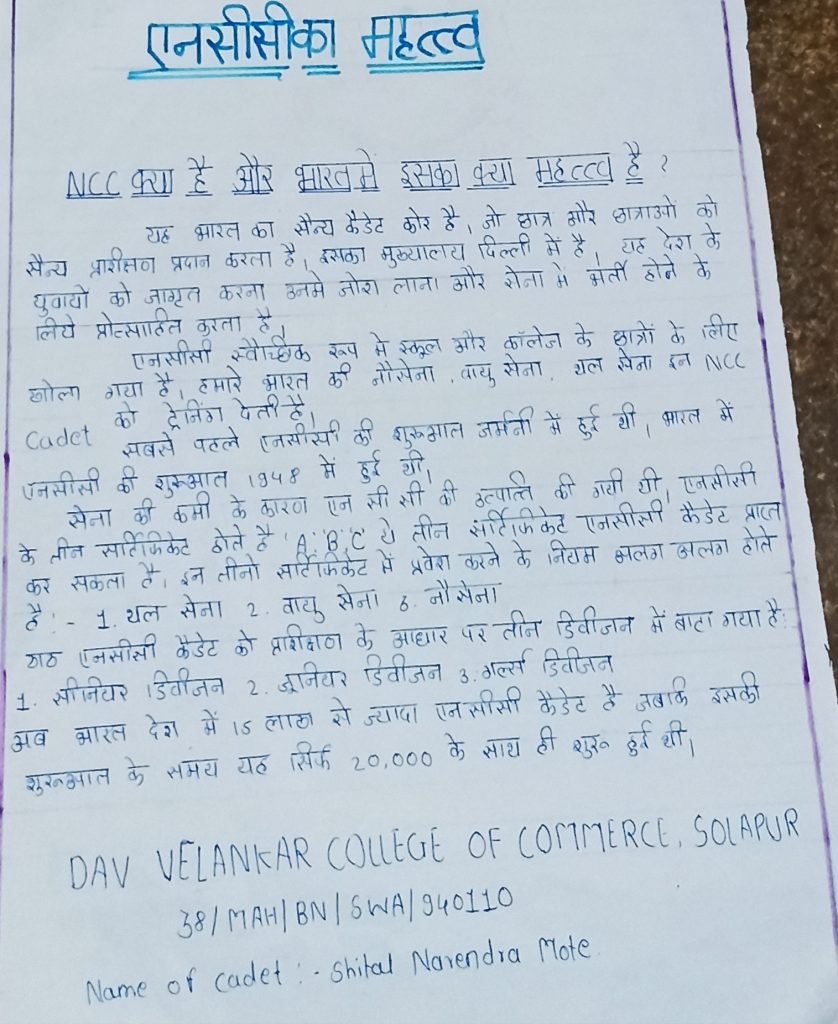 एनसीसीका महत्त्व
NCC क्या है और भारतमें इसका क्या महत्त्व है ?
यह भारत का सैन्य कैडेट कोर है, जो छात्र और छात्राओं को
सैन्य प्राशीक्षण प्रदान करता है, इसका मुख्यालय दिल्ली में है, यह देश के
युवायों को जागृत करना उनमे जोश लाना और सेना मे भर्ती होने के
लिये प्रोत्साहित करता है,
एनसीसी स्वैच्छिक रूप मे स्कूल और कॉलेज के छात्रों के लिए
खोला गया है, हमारे भारत की नौसेना, वायु सेना, थल सेना इन NCC
Cadet को ट्रेनिंग देती है,
सबसे पहले एनसीसी की शुरूआत जर्मनी में हुई थी, भारत में
एनसीसी की शुरूआत 1948 में हुई थी,
सेना की कमी के कारण एन सी सी की उत्पात्ति की गयी थी, एनसीसी
के तीन सार्टिफिकेट होते है 'A' 'B' 'C' ये तीन सार्टिफिकेट एनसीसी कैडेट प्राप्त
कर सकता है, इन तीनो सार्टिफिकेट में प्रवेश करने के नियम अलग अलग होते
है :- 1. थल सेना 2. वायु सेना 3. नौसेना
एनसीसी कैडेट को प्राशीक्षण के आधार पर तीन डिवीजन में बाटा गया है:
1. सीनियर डिवीजन 2. जूनियर डिवीजन 3. गर्ल्स डिवीजन
अब भारत देश में 15 लाख से ज्यादा एनसीसी कैडेट है जबकि इसकी
शुरूआत के समय यह सिर्फ 20,000 के साथ ही शुरू हुई थी,
DAV VELANKAR COLLEGE OF COMMERCE, SOLAPUR
38/MAH/BN/SWA/940110
Name of cadet :- Shital Narendra Mote